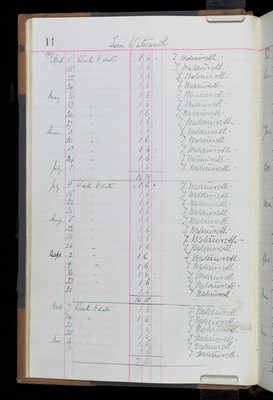 11
Tom Waterworth
April 8 Week to date 1 6 T Waterworth
15 " 1 6 T Waterworth
22 " 1 6 T Waterworth
" 1 6 T Waterworth
May 6 " 1 6 T Waterworth
13 " 1 6 T Waterworth
20 " 1 6 T Waterworth
" 1 6 T Waterworth
June 3 " 1 6 T Waterworth
10 " 1 6 T Waterworth
17 " 1 6 T Waterworth
24 " 1 6 T Waterworth
July 1 " 1 6 T Waterworth
July 8 Week to date 1 6 T Waterworth
15 " 1 6 T Waterworth
22 " 1 6 T Waterworth
" 1 6 T Waterworth
Aug 5 " 1 6 T Waterworth
12 " 1 6 T Waterworth
19 " 1 6 T Waterworth
26 " 1 6 T Waterworth
Sept 2 " 1 6 T Waterworth
9 " 1 6 T Waterworth
16 " 1 6 T Waterworth
23 " 1 6 T Waterworth
30 " 1 6 T Waterworth
Oct 7 Week to date 1 6 T Waterworth
14 " 1 6 T Waterworth
21 " 1 6 T Waterworth
28 " 1 6 T Waterworth
Nov 4 " 1 6 T Waterworth
" 1 6 T Waterworth